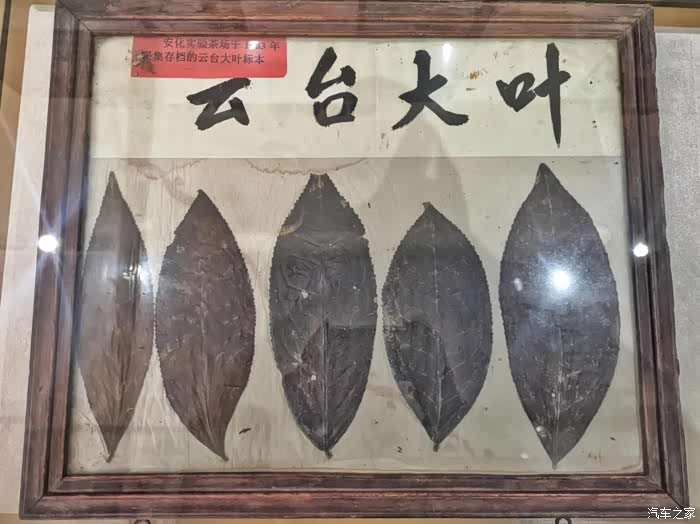 安化实验茶场于
年
采集存档的云台大叶标本
云台大叶
汽车之家